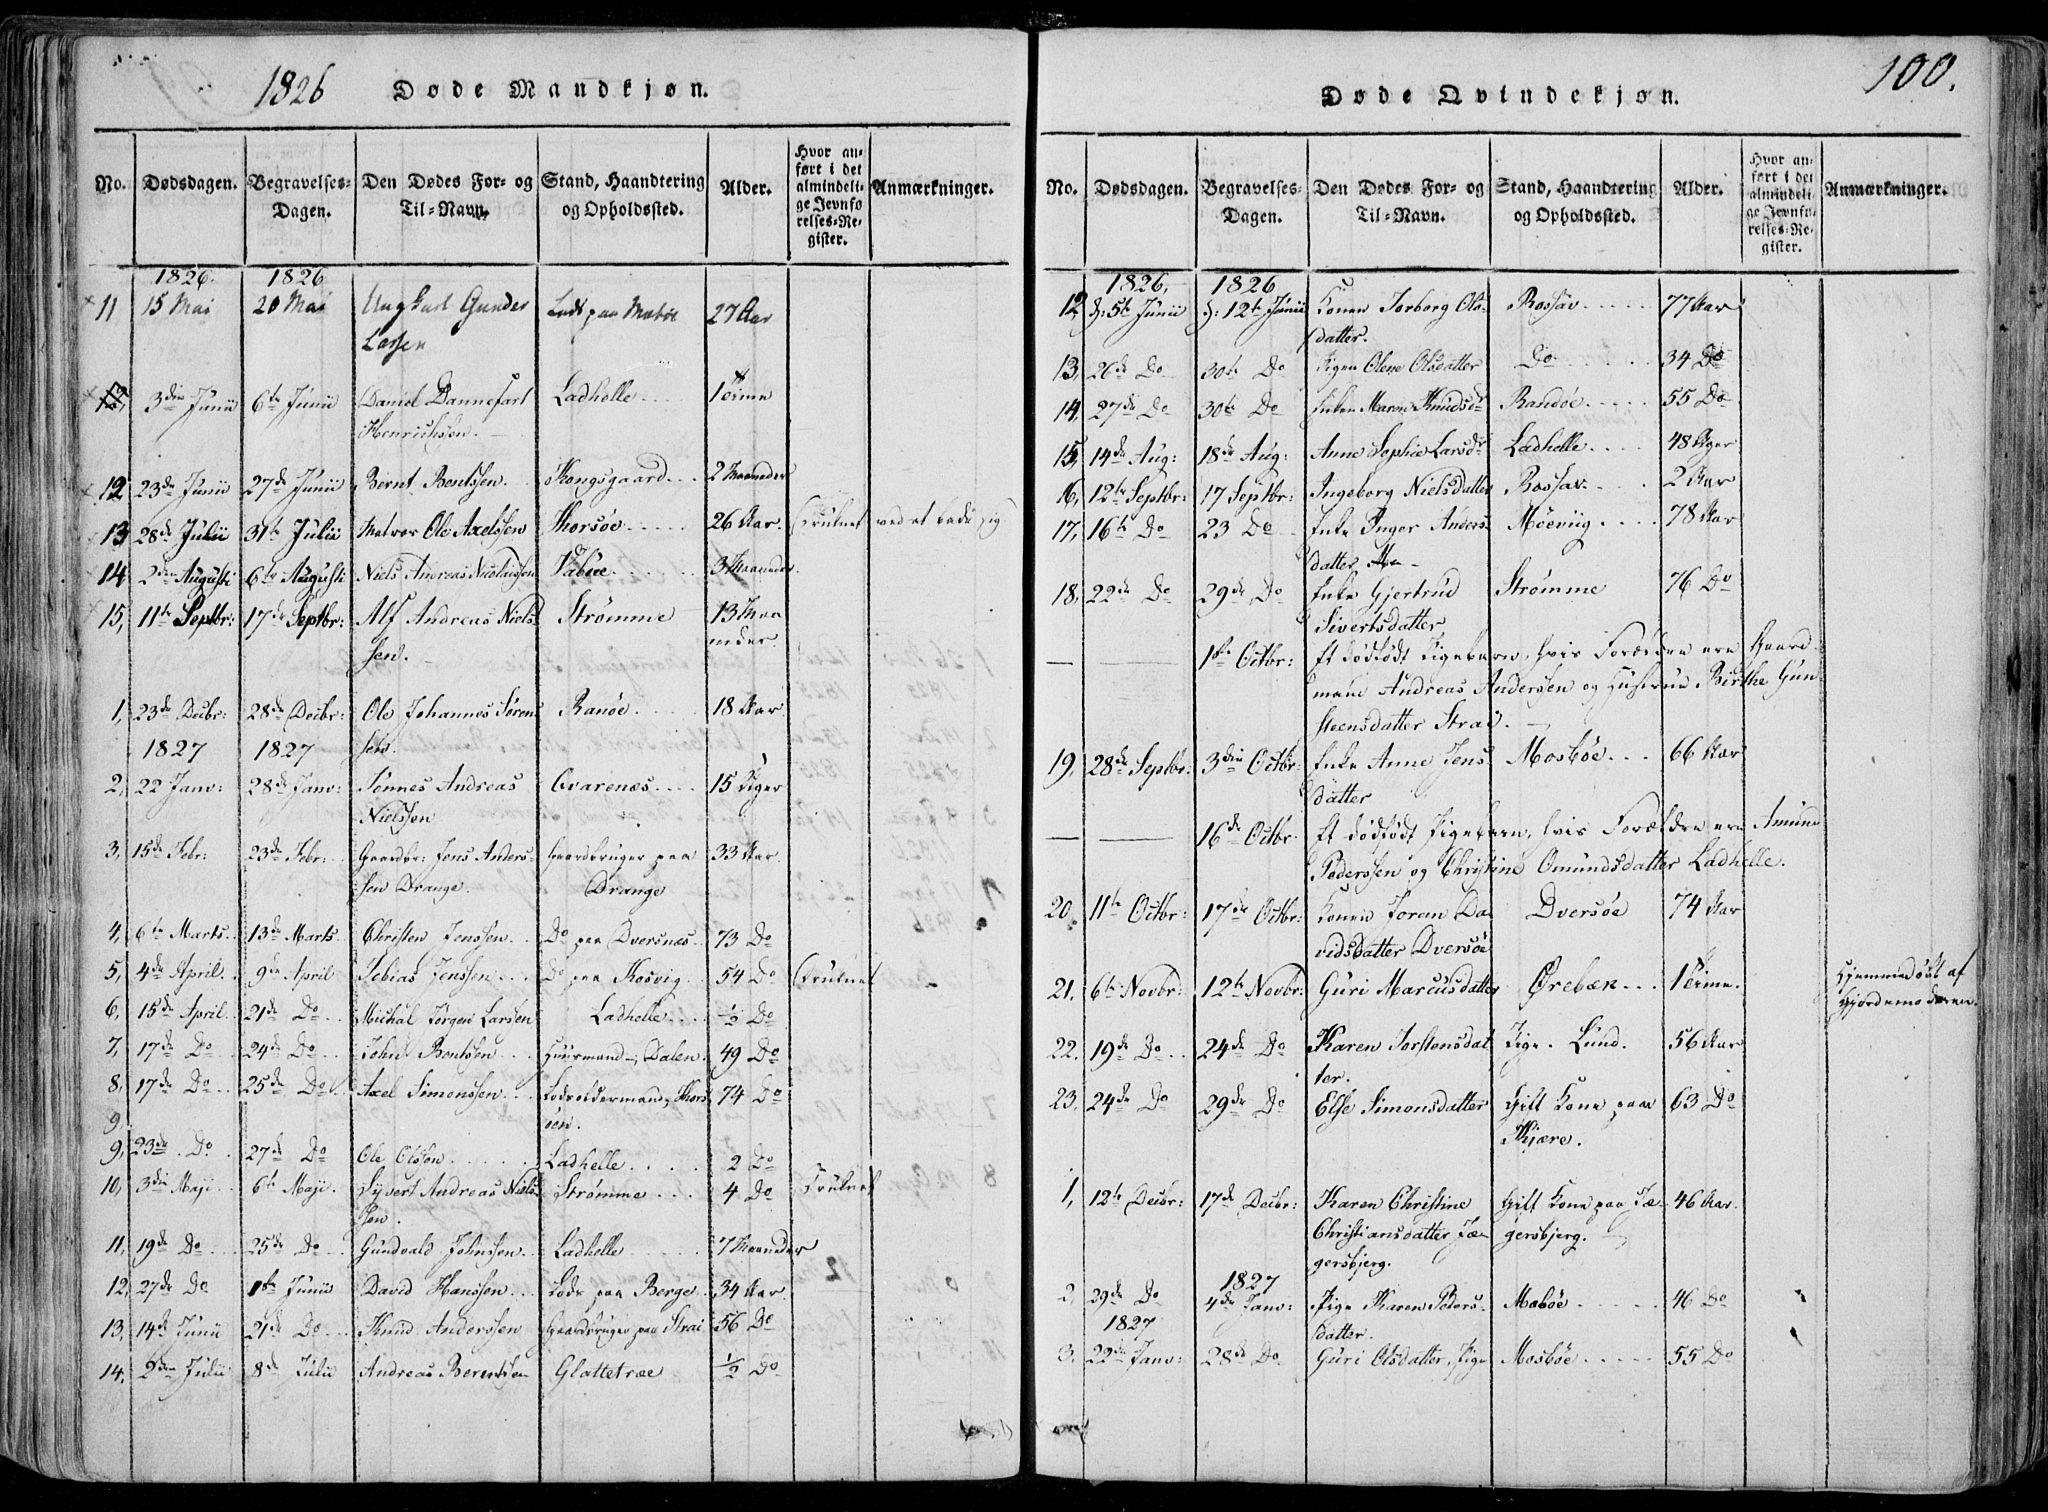 1826 Døde Mandkjøn.
No. Dødsdagen. Begravelses-Dagen. Den Dødes For- og Til-Navn. Stand, Haandtering og Opholdssted. Alder. Hvor anført i det almindelige Jevnførelses-Register. Anmærkninger.
1826. 1826
11 15 Mai 20 Mai Ungkarl Gunder Lods paa 27 Aar
Larsen
3die Junii 6te Junii Daniel Dannefart Ladhelle 1 Time
Henrichsen.
12 23de Junii 27de Junii Bernt Bentssen. Kongsgaard 2 Maaneder
13 28de Julii 31te Julii Matros Ole Axelssen Thorsøe 26 Aar. Druknet ved at bade sig
14 2den Augusti 6te Augusti Niels Andreas Nicolaissen 3 Maaneder.
15, 11te Septbr: 17de Septbr: Alf Andreas Niels- Strømme 13 Maa
sen. neder.
1, 23de Decbr: 28de Decbr: Ole Johannes Sørens Ranøe 18 Aar
1827 1827 sen.
2, 22 Janv: 28de Janv: Tønnes Andreas Qvarenæs 15 Uger
Nielssen
3, 15de Febr: 23de Febr: Gaardbr: Jens Anders- Gaardbruger paa 33 Aar.
sen Drange. Drange
4, 6te Marts 13de Marts. Christen Jenssen Do paa Dversnæs 73 Do
5, 4de April. 9de April Tobias Jenssen Do paa Kosvig 54 Do Druknet
6, 15de April 21de Do Michal Jørgen Larsen Ladhelle ½ Do
7, 17de Do 24de Do John Bentsen Huusmand, Dalen. 49 Do
8, 17de Do 25de Do Axel Simonssen Lodsoldermand, Thors 74 Do
9 øen.
9, 23de Do 27de Do Ole Olssen Ladhelle 2 Do
10, 3die Maji 6te Maji Syvert Andreas Niels- Strømme 4 Do Druknet
sen.
11, 19de Do 25de Do Gundvald Johnssen Ladhelle 7 Maaneder
12, 27de Do 1ste Junii David Hanssen Lods paa Berge 34 Aar
13, 14de Junii 21de Do Knud Anderssen Gaardbruger paa Strai 56 Do
14, 2den Julii 8de Julii Andreas Berentsen Glattetræ ½ Do
100.
Døde Qvindekjøn.
No. Dødsdagen. Begravelses-Dagen. Den Dødes For- og Til-Navn. Stand, Haandtering og Opholdssted. Alder. Hvor anført i det almindelige Jevnførelses-Register. Anmærkninger.
1826. 1826
12, d: 5te Junii d: 12te Junii Konen Torborg Ols- Rossav 77 Aar
datter.
13, 26de Do 30te Do Pigen Olene Olsdatter Do 34 Do
14, 27de Do 30te Do Enken Maren Knudsdr Randøe 55 Do
15, 14de Aug: 18de Aug: Anne Sophie Larsdr Ladhelle 48 Uger
16, 12te Septbr: 17 Septbr: Ingeborg Nielsdatter Rossav 2 Aar
17, 16te Do 23 Do Enke Inger Anders- Møeviig 78 Aar
datter
18, 22de Do 29de Do Enke Gjertrud Strømme 76 Do
Sivertsdatter
1ste Octbr: Et dødfødt Pigebarn, hvis Forældre ere Gaard
mand Andreas Andersen og Hustrue Birthe Gun
steensdatter Strai.
19, 28de Septbr: 3die Octbr: Enke Anne Jens Mosbøe 66 Aar
datter
16de Octbr Et dødfødt Pigebarn, hvis Forældre ere Amund
Pederssen og Christine Omundsdatter Ladhelle.
20, 11te Octbr: 17de Octbr: Konen Joran Da Dversøe 74 Aar
vidsdatter Dversøe
21, 6te Novbr: 12te Novbr: Guri Marcusdatter Ørebæk 1 Time. Hjemmedøbt af
Gjordemoderen.
22, 19de Do 24de Do Karen Torstensdat Pige. Lund. 56 Aar
ter.
23, 24de Do 29de Do Else Simonsdatter Gift Kone paa 63 Do
Kjære.
1, 12te Decbr: 17de Decbr: Karen Christine Gift Kone paa Jæ- 46 Aar.
Christiansdatter Jæ gersbjerg.
gersbjerg.
1827
2, 29de Do 4de Janv: Pige Karen Peders- Mebøe 46 Do
1827 datter.
3, 22de Janv: 28de Do Guri Olsdatter, Pige Mosbøe 55 Do